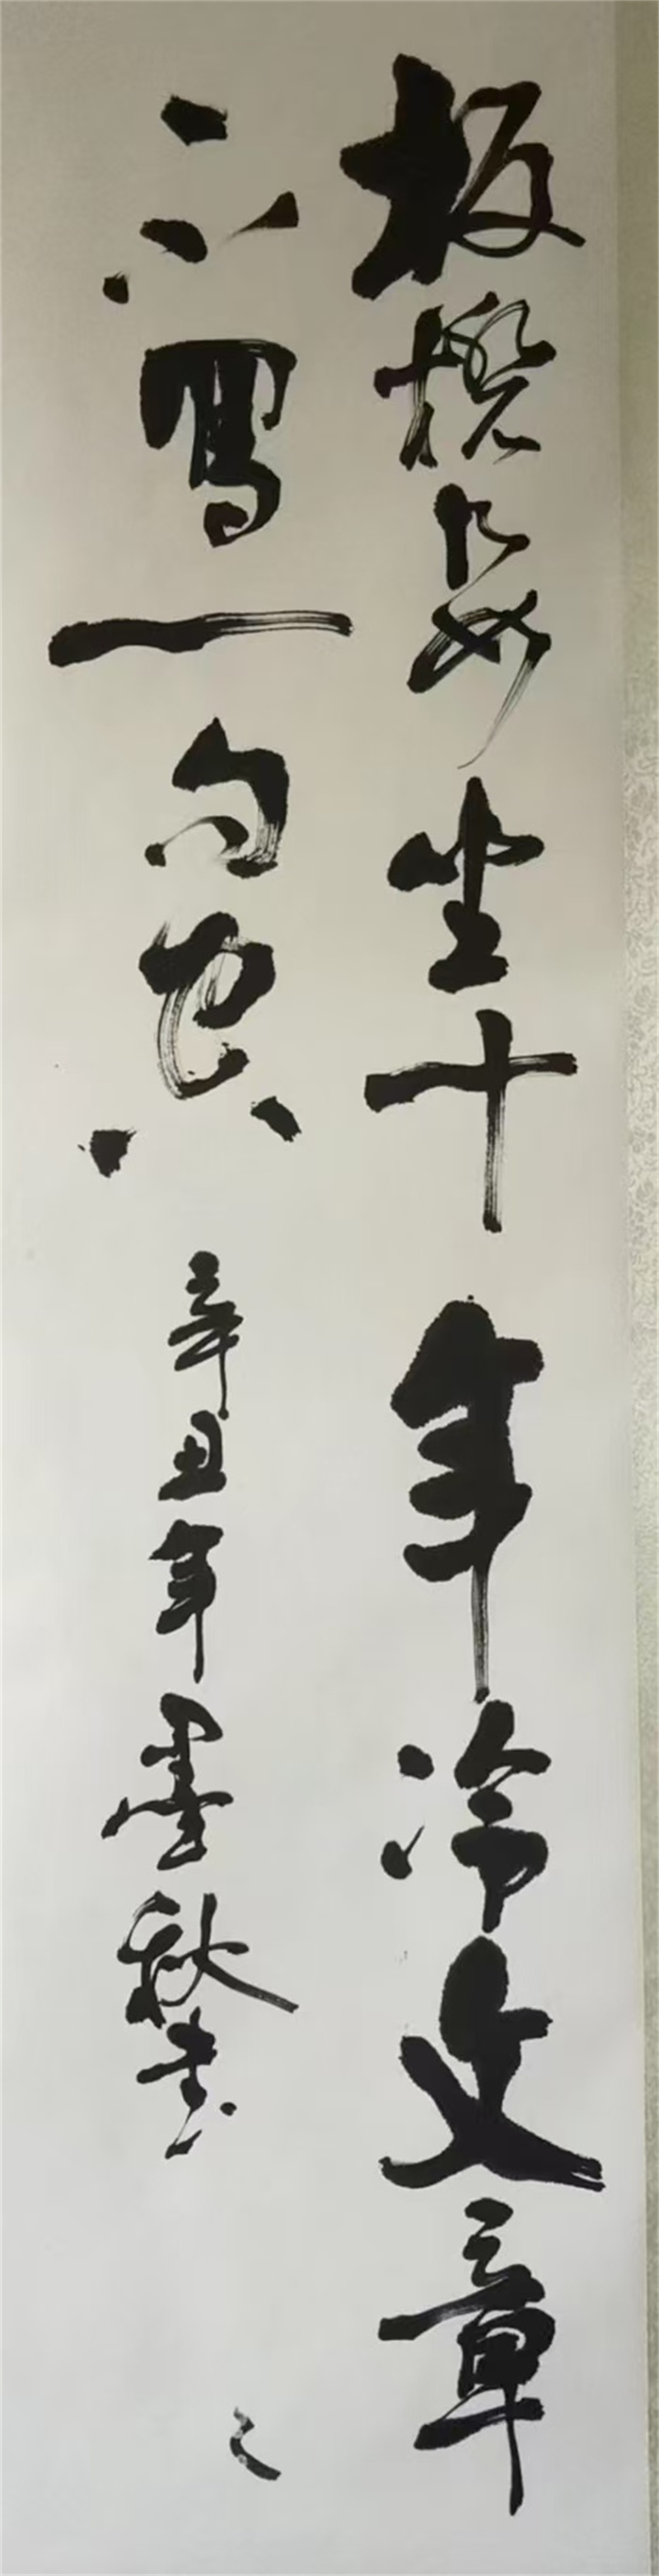 板櫈要坐十年冷文章
不寫一句空 辛丑年墨秋書